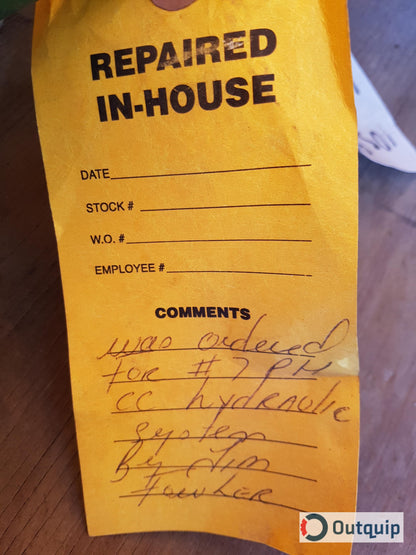 REPAIRED
IN-HOUSE
DATE
STOCK #
W.O. #
EMPLOYEE #
COMMENTS
was ordered
for #7 PH
CC hydraulic
system
by Jim
Fowler
Outquip